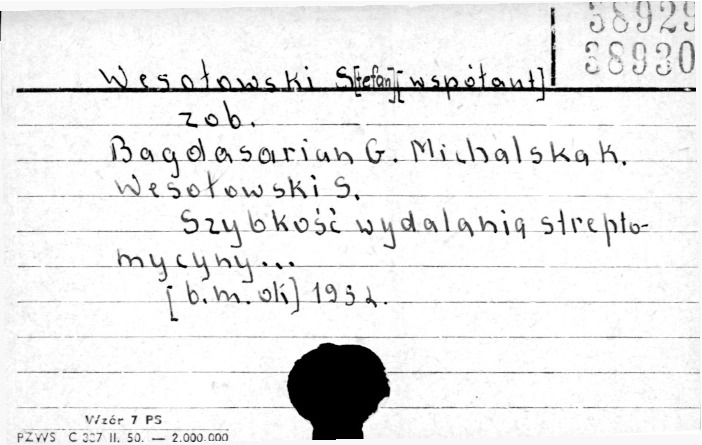 38929
38930
Wesołowski S[tefan][współaut]
zob.
Bagdasarian G. Michalska K.
Wesołowski S.
Szybkość wydalania strepto-
mycyny...
[b.m. ok] 1952.
Wzór 7 PS
PZWS C 337 II. 50. — 2.000.000